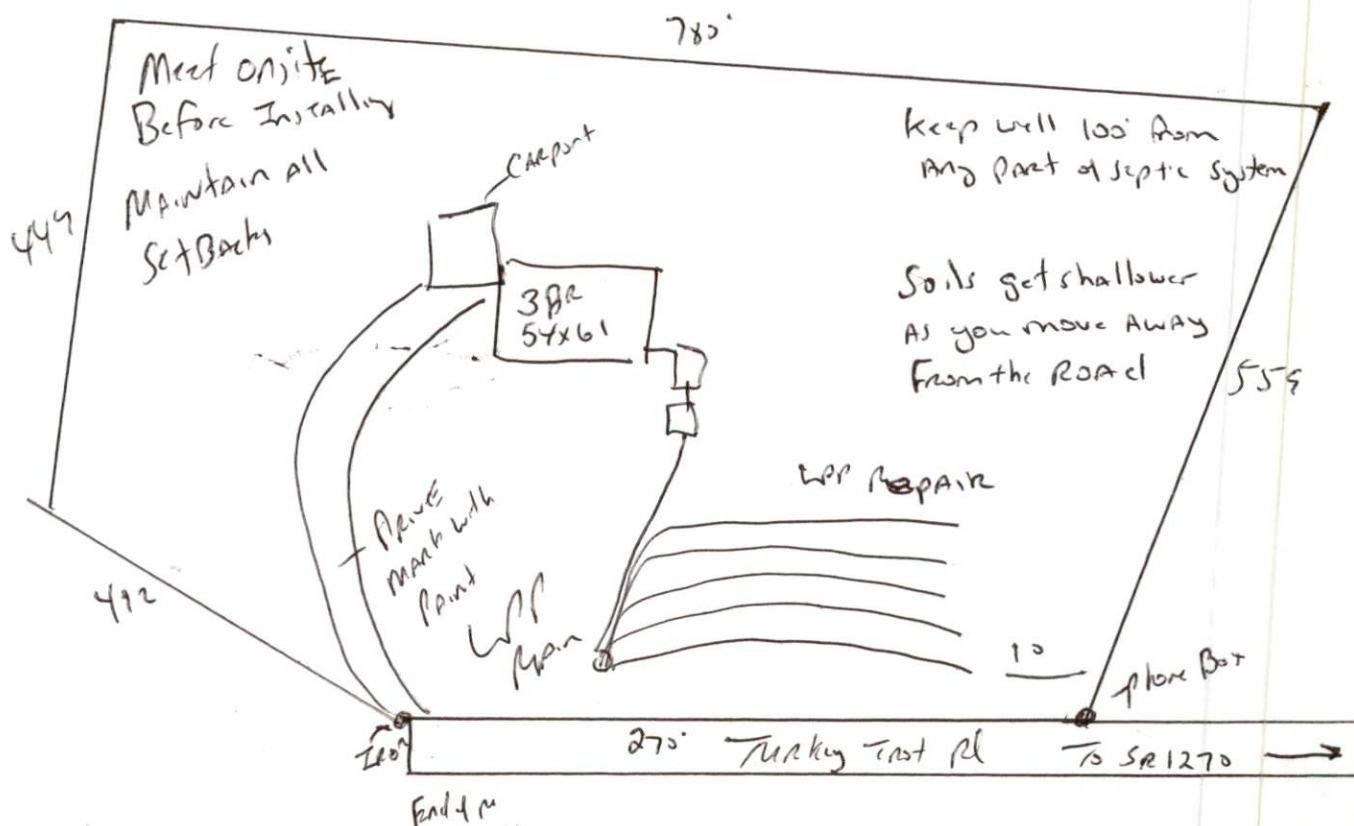 780'
Meet onsite
Before Installing
Maintain all
SetBacks
Keep well 100' from
Any part of septic system
CARport
449
3BR
54x61
Soils get shallower
As you move Away
From the Road
559
LPP Repair
Drive
mark with
Paint
LPP
Repair
492
10
phone Box
Iron
270' Turkey Trot Rd To SR1270
End of